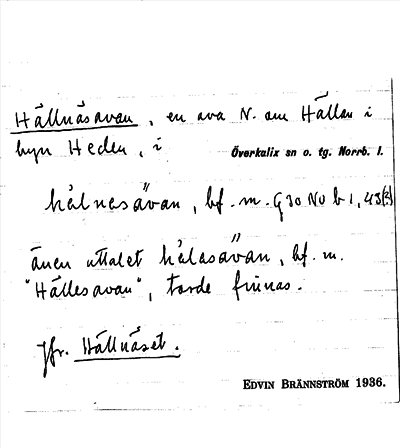 Hällnäsavan, en ava N. om Hällan i
byn Heden, i Överkalix sn o. tg. Norrb. l.
hälnasävan, bf. m. G 30 No b 1, 43
även uttalet hälasävan, bf. m.
"Hällesavan", torde finnas.
Jfr. Hällnäset.
EDVIN BRÄNNSTRÖM 1936.